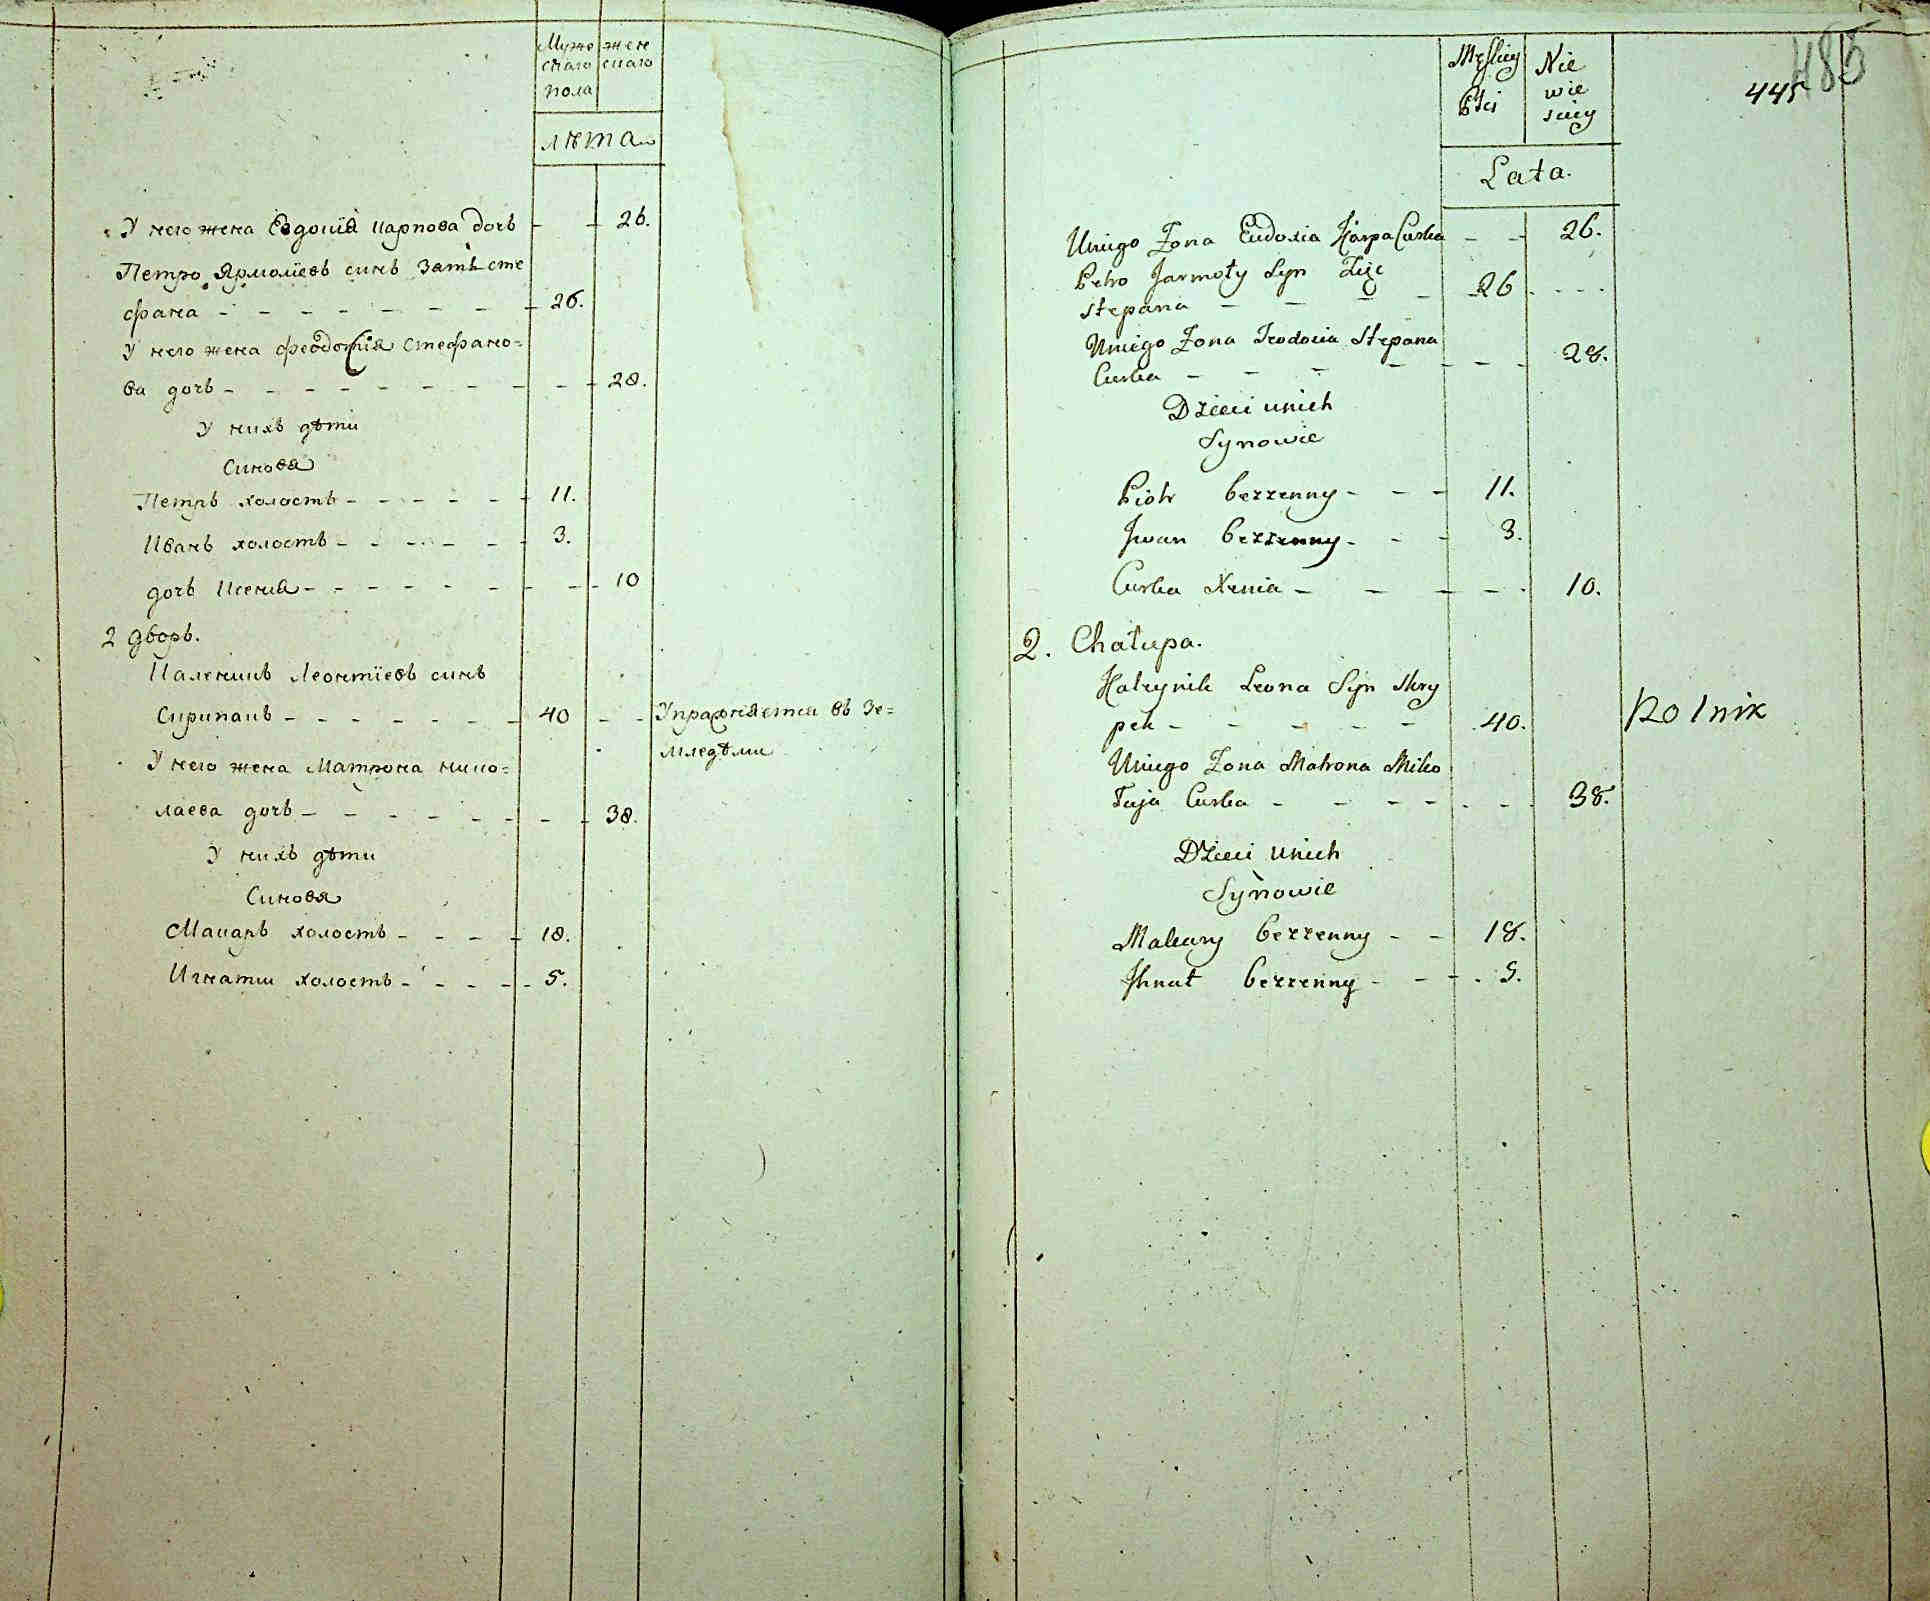 Муже жен
скаго скаго
пола
лѣта
У него жена Евдокія Карпова дочь - - 26.
Петро Ярмолiевъ синъ Зять сте
фана - - - - - - - - 26.
У него жена феодосiя Стефано=
ва дочь - - - - - - - - - - 28.
У нихъ дѣти
Синовя
Петръ холостъ - - - - - 11.
Иванъ холостъ - - - - - 3.
дочь Ксенiя - - - - - - - - 10
2 дворъ.
Каленикъ Леонтiевъ синъ
Скрипакъ - - - - - - - 40 - - Упражняется въ Зе=
мледѣли
У него жена Матрона нико=
лаева дочь - - - - - - - - 38.
У нихъ дѣти
Синовя
Макаръ холостъ - - - - 18.
Игнатiй холостъ - - - - 5.
485
445
Męſkiey
Płci
Nie
wie
sciey
Lata.
Uniego Żona Eudoxia Karpa Curka - - 26.
Petro Jarmoły Syn Zięć
Stepana - - - - 26 - - -
Uniego Żona Teodosia Stepana
Curka - - - - - - 28.
Dzieci unich
Synowie
Piotr bezzenny - - - 11.
Jwan bezzenny - - - 3.
Curka Xenia - - - - - 10.
2. Chałupa.
Kalzynik Leona Syn Skry
pek - - - - - 40. Rolnik
Uniego Żona Matrona Miko
łaja Curka - - - - - - 38.
Dzieci unich
Synowie
Makary bezzenny - - 18.
Jhnat bezzenny - - - 5.